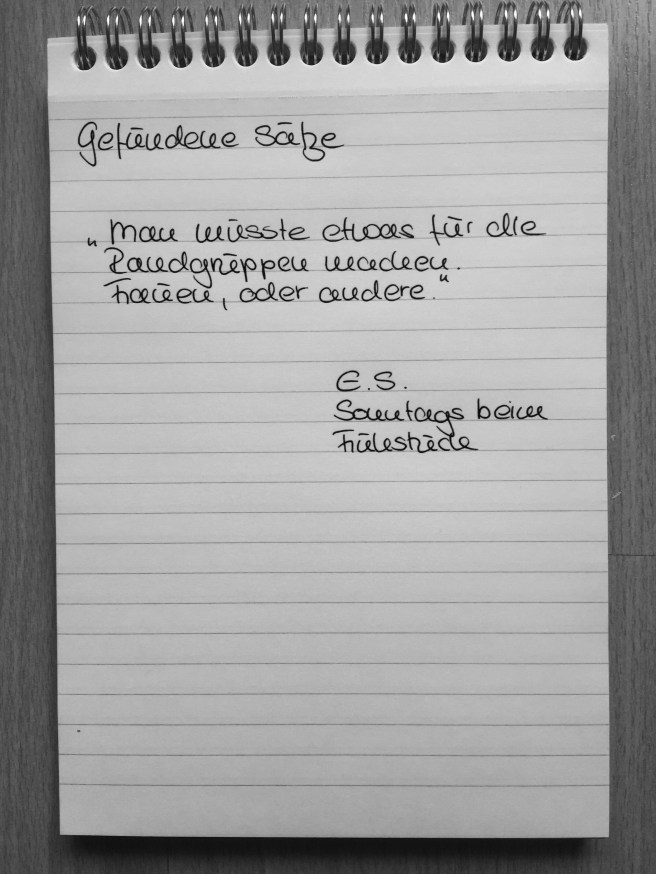 Gefundene Sätze
„Man müsste etwas für die
Randgruppen machen.
Frauen, oder andere."
E.S.
Sonntags beim
Frühstück